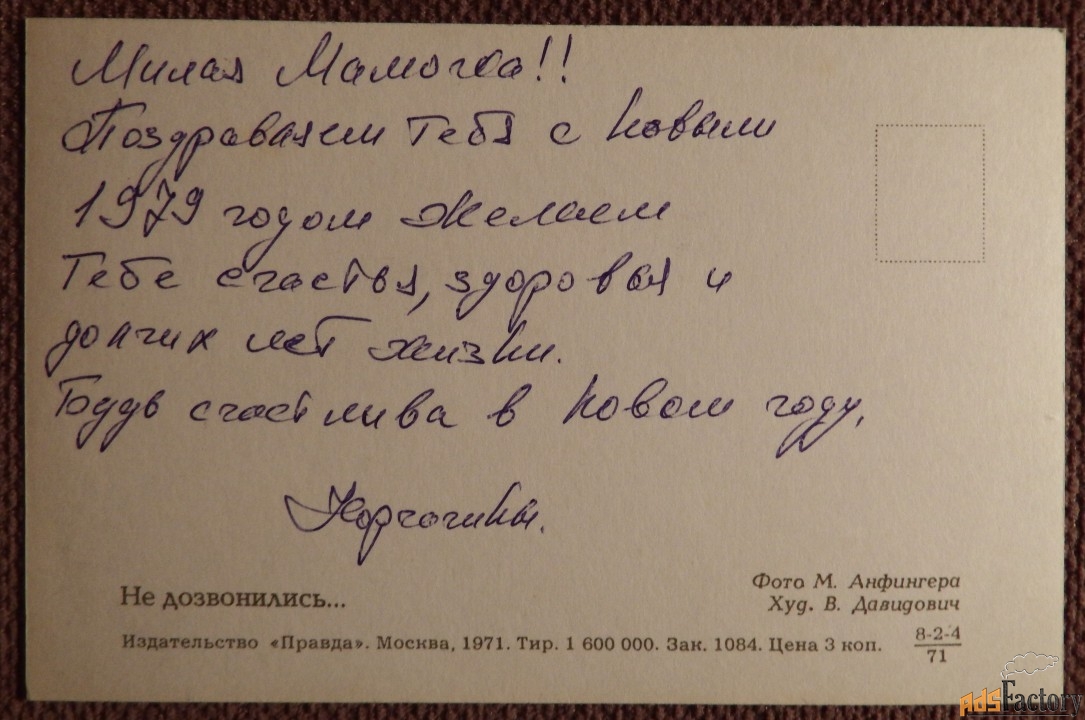 Милая Мамочка!!
Поздраваяем Тебя с Новым
1979 годом Желаем
Тебе счастья, здоровья и
долгих лет жизни.
Будь счастлива в Новом году.
Корчагины.
Не дозвонились...
Фото М. Анфингера
Худ. В. Давидович
Издательство «Правда». Москва, 1971. Тир. 1 600 000. Зак. 1084. Цена 3 коп. 8-2-4
71
AdsFactory